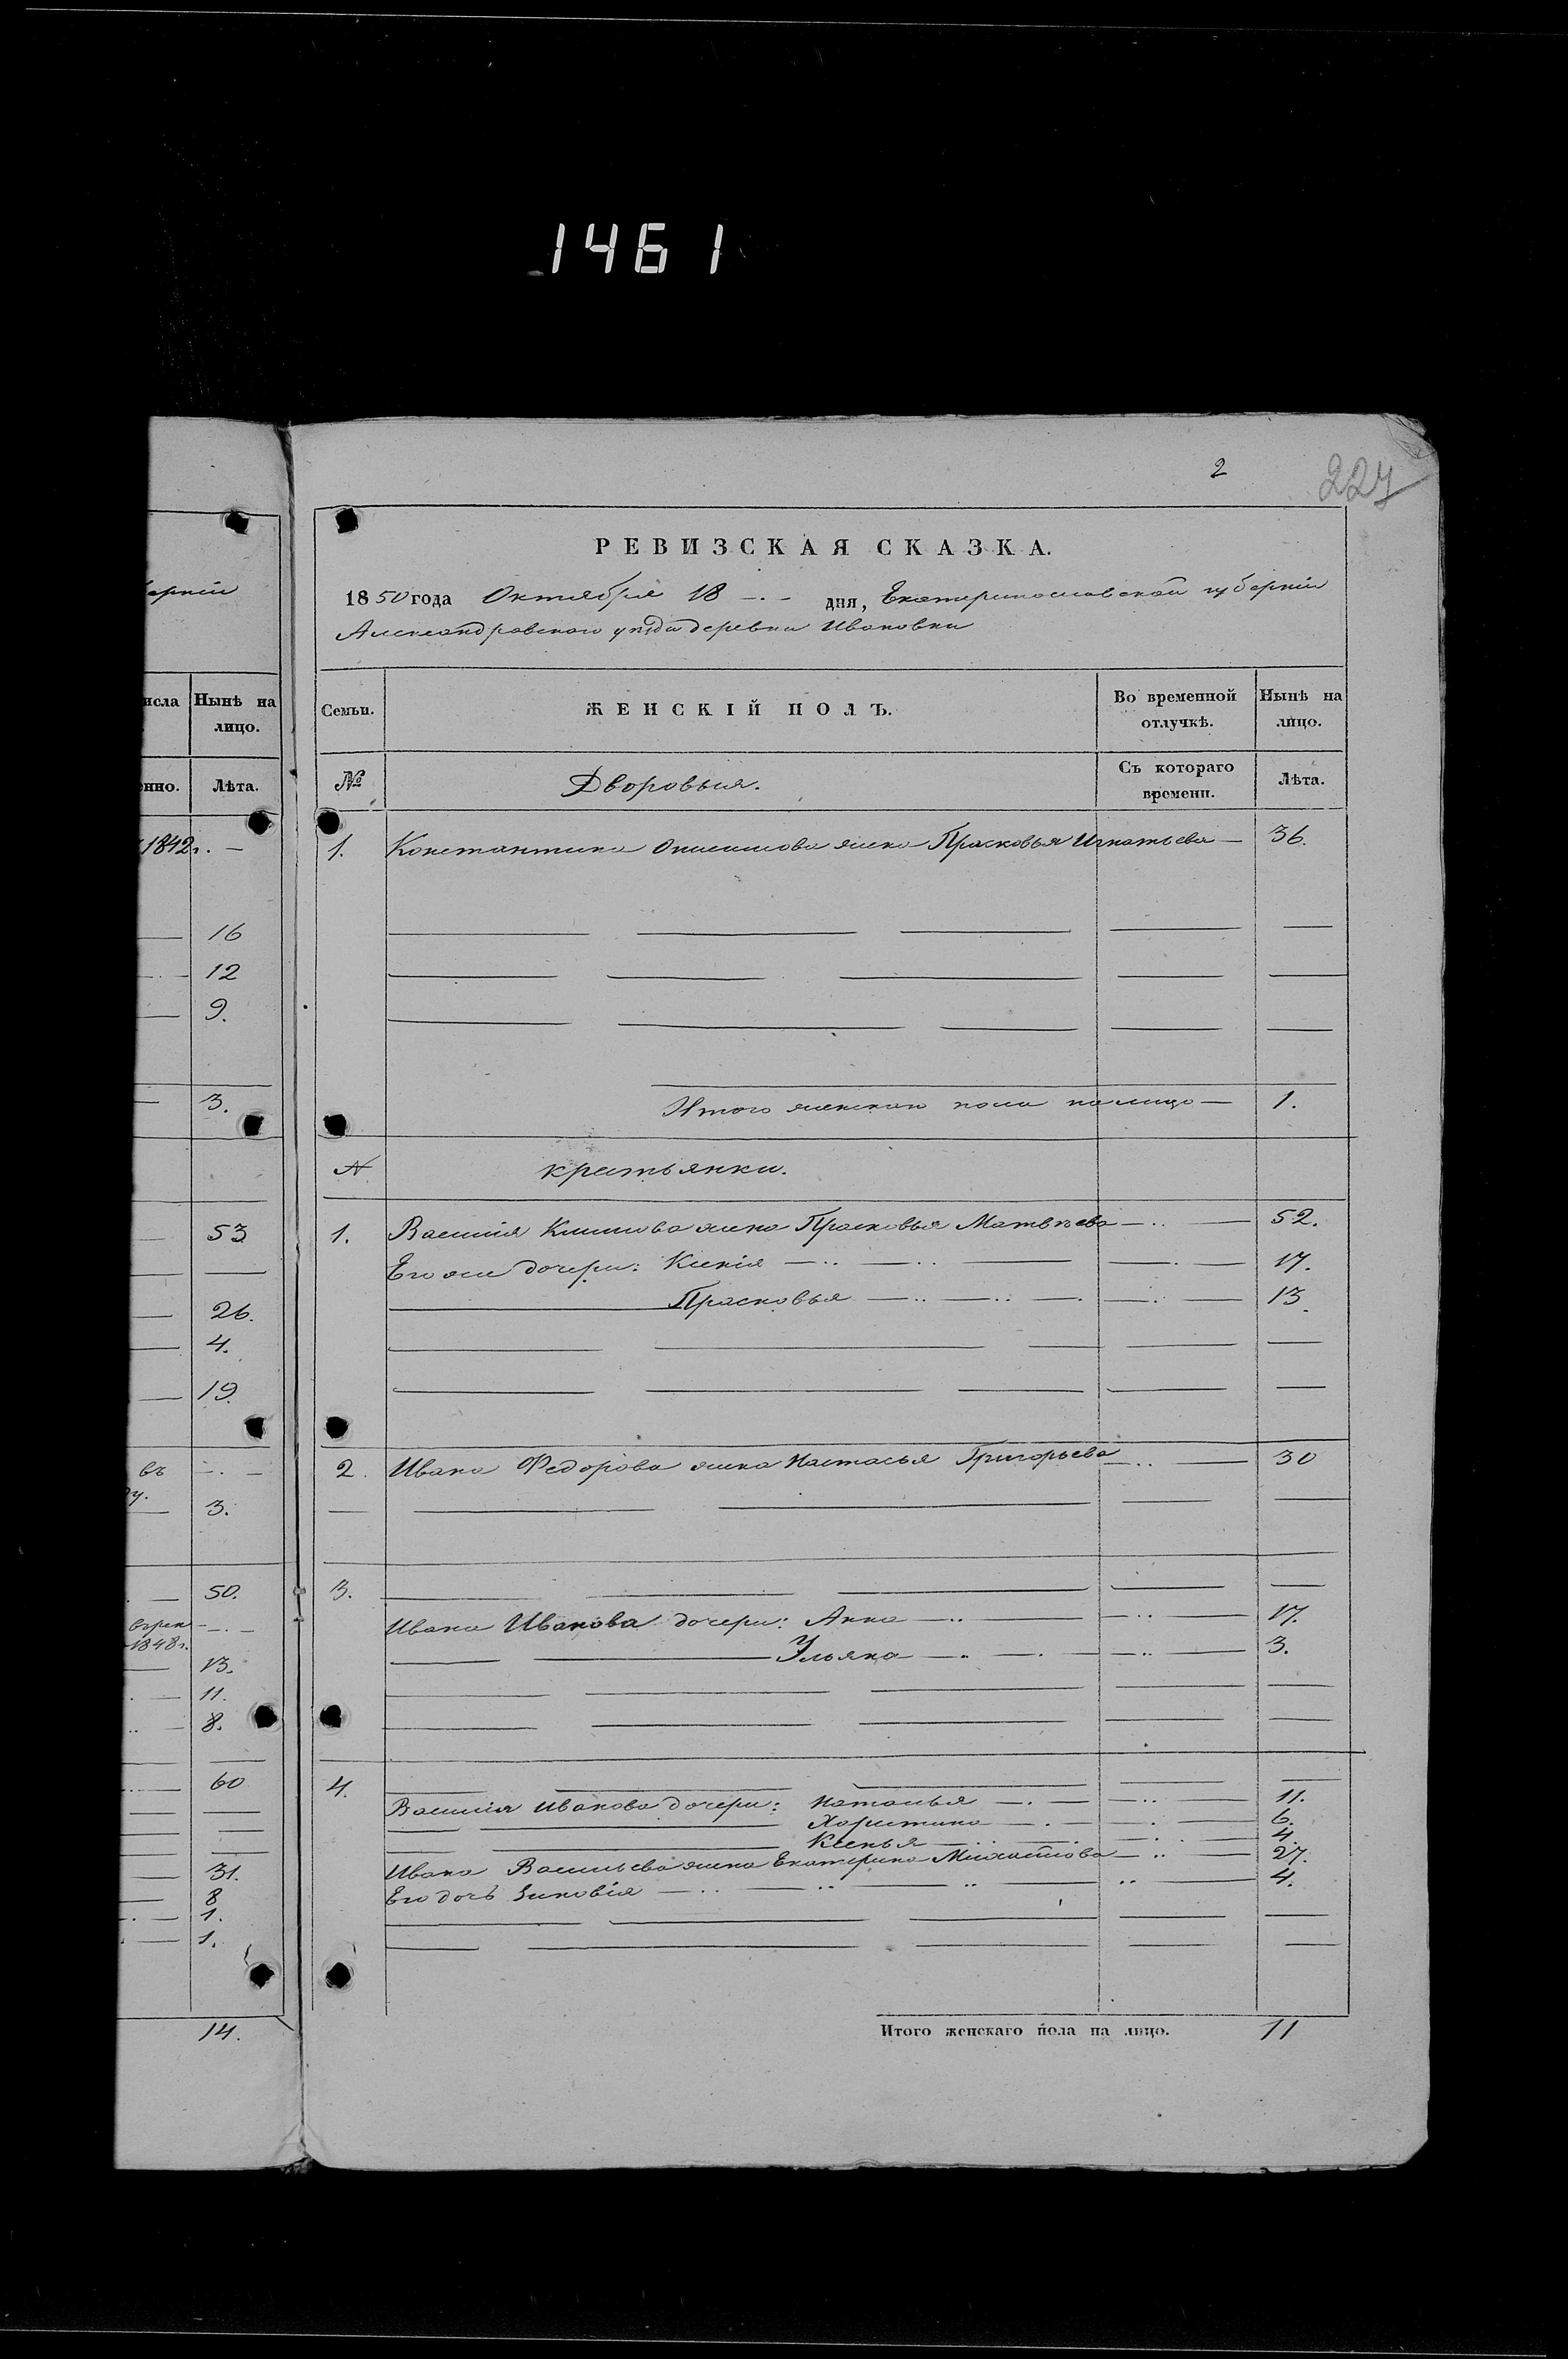 1461
2
227
ерніи
РЕВИЗСКАЯ СКАЗКА.
1850 года Октября 18 дня, Екатеринославской губерніи
Александровскаго уѣзда деревни Ивановки
исла
Нынѣ на лицо.
нно.
Лѣта.
1842г. —
16
12
9.
3.
53
26.
4.
19.
въ
3.
50.
1848г.
13.
11.
8.
60
31.
8
1.
1.
14.
Семьи.
ЖЕНСКІЙ ПОЛЪ.
Во временной отлучкѣ.
Нынѣ на лицо.
№
Дворовыя.
Съ котораго времени.
Лѣта.
1. Константина Онисимова жена Прасковья Игнатьева — 36.
Итого женскаго пола налицо — 1.
№ крестьянки.
1. Василія Климова жена Прасковья Матвѣева — 52.
Его же дочери: Ксенія — 17.
Прасковья — 13.
2. Ивана Федорова жена Настасья Григорьева — 30
3.
Ивана Иванова дочери: Анна — 17.
Ульяна — 3.
4.
Василія Иванова дочери: Наталья — 11.
Харитина — 6.
Ксенья — 4.
Ивана Васильева жена Екатерина Михайлова — 27.
Его дочь Зиновія — 4.
Итого женскаго пола на лицо. 11